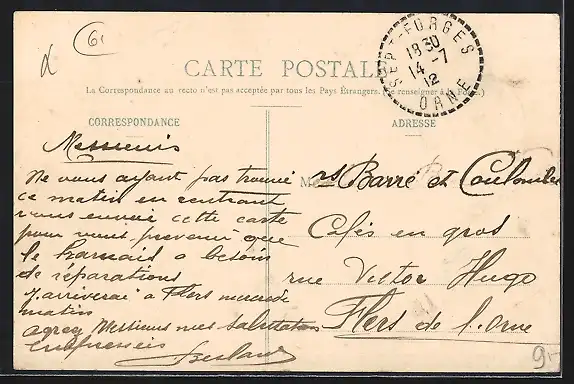 61
CARTE POSTALE
La Correspondance au recto n'est pas acceptée par tous les Pays Étrangers. (Se renseigner à la Poste.)
SEPT-FORGES
18 30
14 -7
12
ORNE
CORRESPONDANCE
ADRESSE
Messieurs
Ne vous ayant pas trouvé
ce matin en rentrant
vous envoie cette carte
pour vous prevenir que
le harnais a besoin
de réparations
J'arriverai a Flers mercredi
matin
agreez Messieurs mes salutations
empressées
M rs Barré et Coulombe
Cafés en gros
rue Victor Hugo
Flers de l'Orne
9